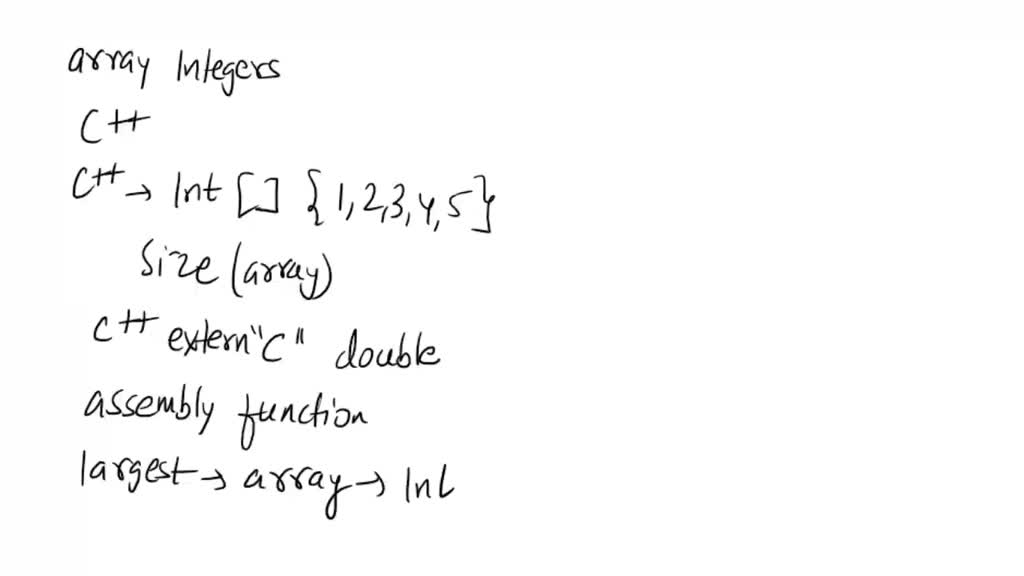 array Integers
C++
C++ → Int [] {1,2,3,4,5}
Size (array)
C++ extern "C" double
assembly function
largest → array → Int